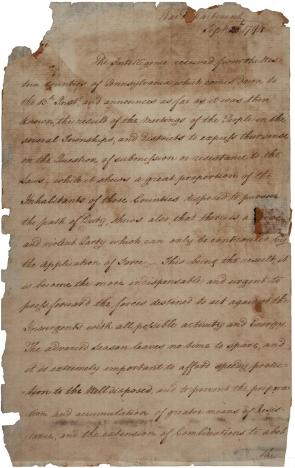 War Department
Sept 20th 1794
The Intelligence received from the Wes-
tern Counties of Pennsylvania which comes down to
the 13th Inst. and announces as far as it was then
known, the result of the Meetings of the People in the
several Townships, and Districts to express their sense
on the Question of submission or resistance to the
Laws; while it shews a great proportion of the
Inhabitants of those Counties disposed to pursue
the path of Duty, shews also that there is a
and violent Party which can only be controuled by
the application of Force — This being the result, it
is become the more indispensable and urgent to
press forward the forces destined to act against the
Insurgents with all possible activity and Energy.
The advanced season leaves no time to spare, and
it is extremely important to afford speedy protec-
tion to the Well disposed, and to prevent the prepara-
tion and accumulation of greater means of Resis-
tance, and the extension of Combinations to abet
the